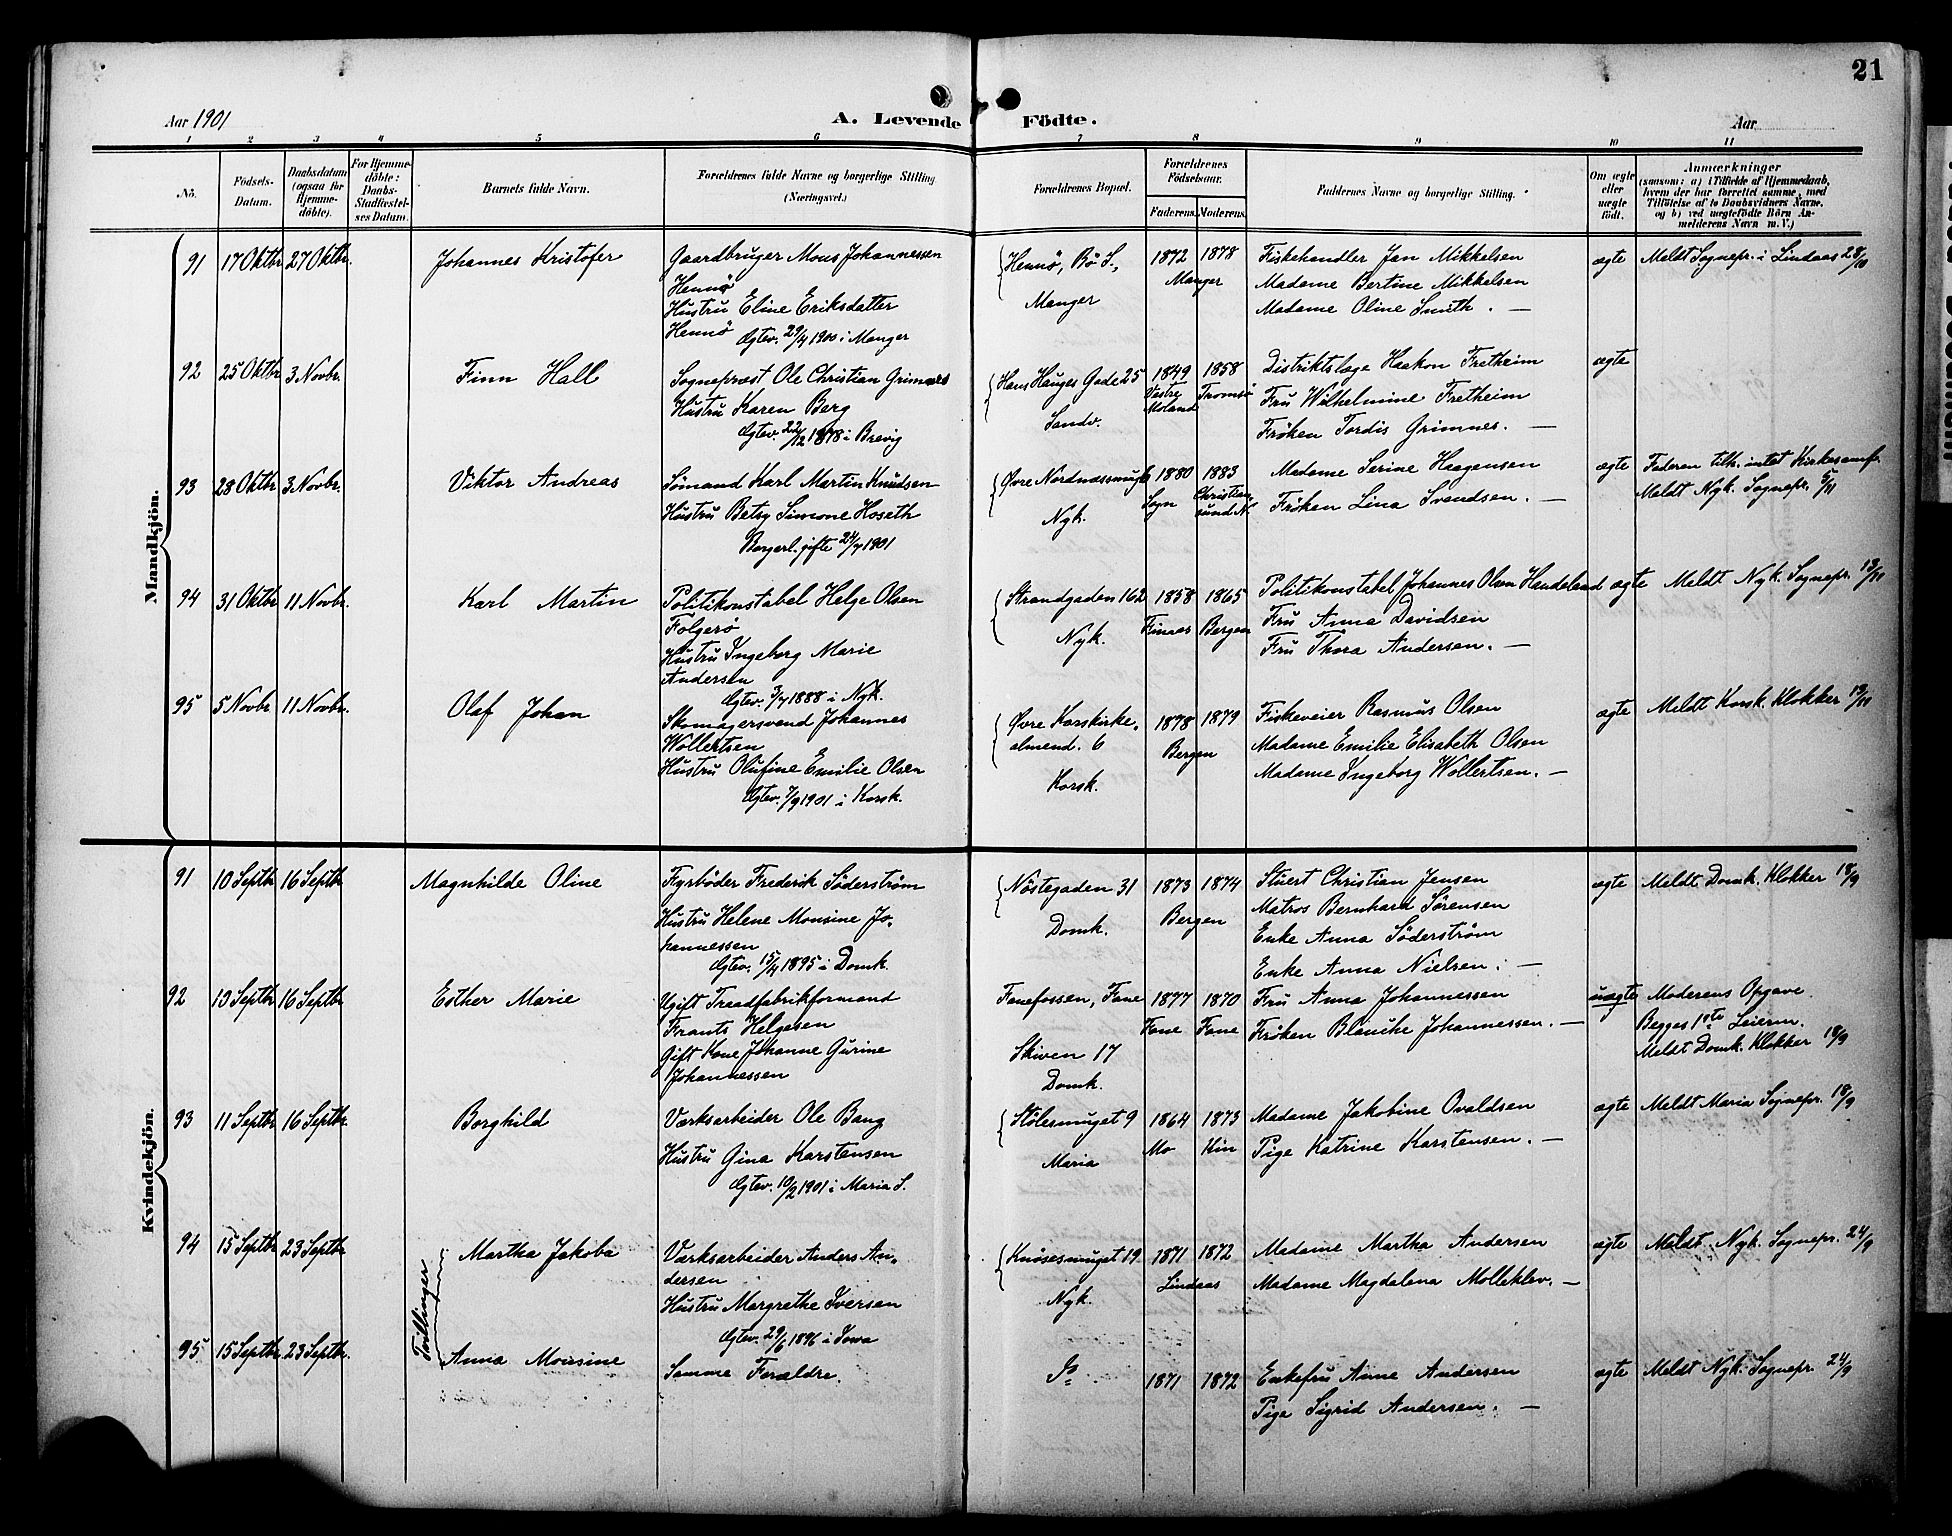 21
Aar 1901
A. Levende Födte.
Aar
1 2 3 4 5 6 7 8 9 10 11
No.
Födsels-Datum.
Daabsdatum (ogsaa for Hjemme-döbte).
For Hjemme-döbte: Daabs-Stadfæstel-ses Datum.
Barnets fulde Navn.
Forældrenes fulde Navne og borgerlige Stilling (Næringsvei.)
Forældrenes Bopæl.
Forældrenes Födselsaar.
Faderens. Moderens.
Faddernes Navne og borgerlige Stilling.
Om ægte eller uægte födt.
Anmærkninger
(saasom: a) i Tilfælde af Hjemmedaab, hvem der har forrettet samme, med Tilföielse af to Daabsvidners Navne, og b) ved uægtefödte Börn An-melderens Navn m. V.)
Mandkjön.
91 17 Oktbr 27 Oktbr. Johannes Kristofer
Gaardbruger Mons Johannessen
Hennö
Hustru Eline Eriksdatter
Hennö
Ægtev. 29/4 1900 i Manger
Hennö, Bö S.,
Manger
1872 1878
Manger
Fiskehandler Jan Mikkelsen
Madame Bertine Mikkelsen
Madame Oline Smith. —
ægte
Meldt Sognepr. i Lindaas 28/10
92 25 Oktbr 3 Novbr. Finn Hall
Sognepræst Ole Christian Grimnes
Hustru Karen Berg
Ægtev. 22/12 1878 i Brevig
Hans Hauges Gade 25
Sandv.
1849 1858
Vestre Moland Tromsö
Distriktslæge Haakon Fretheim
Fru Wilhelmine Fretheim
Fröken Tordis Grimnes. —
ægte
93 28 Oktbr 3 Novbr. Viktor Andreas
Sömand Karl Martin Knudsen
Hustru Betsy Simone Hoseth
Borgerl. gifte 24/7 1901
Övre Nordnæssmug 6
Nyk.
1880 1883
Sogn Christian-sund N.
Madame Serine Haagensen
Fröken Lina Svendsen. —
ægte
Faderen tilh. intet Kirkesamf.
Meldt Nyk. Sognepr. 5/11
94 31 Oktbr 11 Novbr. Karl Martin
Politikonstabel Helge Olsen
Folgerö
Hustru Ingeborg Marie
Andersen
Ægtev. 3/7 1888 i Nyk.
Strandgaden 162
Nyk.
1858 1865
Finnas Bergen
Politikonstabel Johannes Olsen Handeland
Fru Anna Davidsen
Fru Thora Andersen. —
ægte
Meldt Nyk. Sognepr. 13/11
95 5 Novbr. 11 Novbr. Olaf Johan
Skomagersvend Johannes
Wollertsen
Hustru Olufine Emilie Olsen
Ægtev. 7/9 1901 i Korsk.
Övre Korskirke-
almend. 6
Korsk.
1878 1879
Bergen
Fiskeveier Rasmus Olsen
Madame Emilie Elisabeth Olsen
Madame Ingeborg Wollertsen. —
ægte
Meldt Korsk. Klokker 13/11
Kvindekjön.
91 10 Septbr 16 Septbr Magnhilde Oline
Fyrböder Frederik Söderström
Hustru Helene Monsine Jo-
hannessen
Ægtev. 15/4 1895 i Domk.
Nöstegaden 31
Domk.
1873 1874
Bergen
Stuert Christian Jensen
Matros Bernhard Sörensen
Enke Anna Söderström
Enke Anna Nielsen. —
ægte
Meldt Domk. Klokker 18/9
92 13 Septbr 16 Septbr Esther Marie
Ugift Traadfabrikformand
Frants Helgesen
Gift Kone Johanne Gurine
Johannessen
Fanefossen, Fane
Skiven 17
Domk.
1877 1870
Fane Fane
Fru Anna Johannessen
Fröken Blanche Johannessen. —
uægte
Moderens Opgave.
Begges 1ste Leierm.
Meldt Domk. Klokker 18/9
93 11 Septbr 16 Septbr. Borghild
Værksarbeider Ole Bang
Hustru Gina Karstensen
Ægtev. 10/2 1901 i Maria S.
Stölesmuget 9
Maria
1864 1873
Mo Kin
Madame Jakobine Ovaldsen
Pige Katrine Karstensen. —
ægte
Meldt Maria Sognepr. 18/9
Tvillinger
94 15 Septbr 23 Septbr Martha Jakoba
Værksarbeider Anders An-
dersen
Hustru Margrethe Iversen
Ægtev. 29/6 1896 i Iowa
Knösesmuget 19
Nyk.
1871 1872
Lindaas
Madame Martha Andersen
Madame Magdalena Molleklev. —
ægte
Meldt Nyk. Sognepr. 24/9
95 15 Septbr 23 Septbr. Anna Monsine
Samme Forældre.
1871 1872
Enkefru Anne Andersen
Pige Sigrid Andersen. —
ægte
Meldt Nyk. Sognepr. 24/9